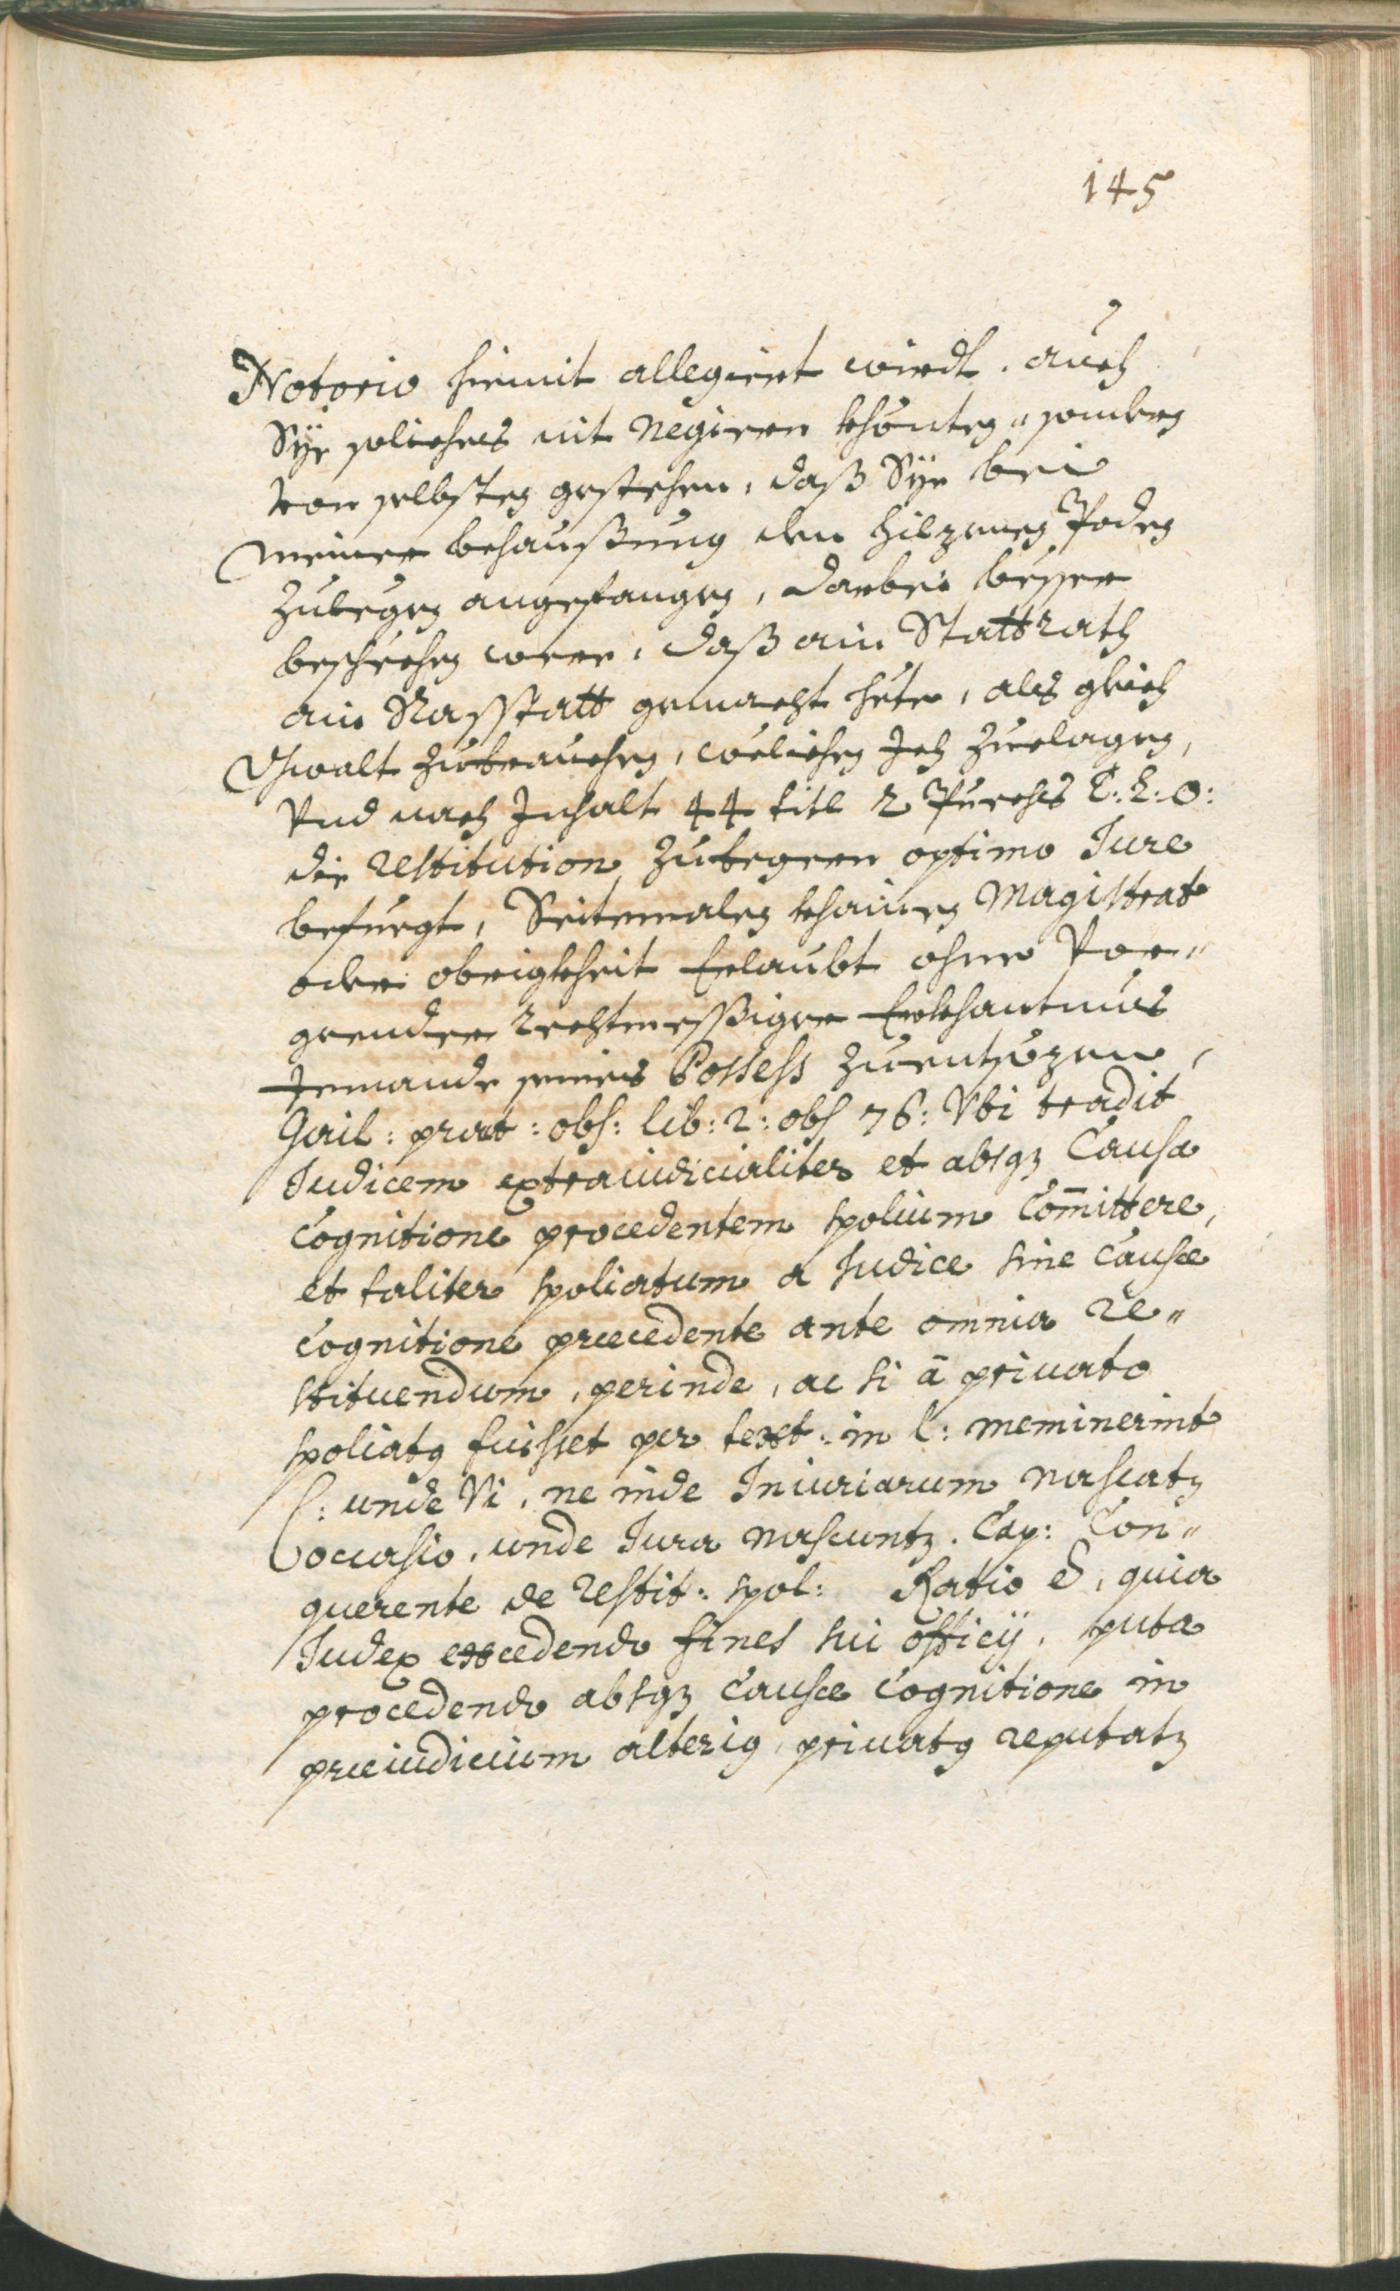 145
Notorio hiemit allegiert wirdt. auch
Sÿe soliches nit Negirn khönten, sondern
von selbsten gestehen, daß Sÿe bei
meiner behaußung den hilzenen Poden
Zulegen angefangen, darbei besser
beschehen were, daß ain Stattrath
ain Rasstatt gemacht hete, als gleich
Gwalt zubrauchen, welichen Ich zuclagen,
Vnd nach Inhalt 44 titl 2 Puechs T: L: O:
die restitution zubegern optimo Iure
befuegt, Seitemalen khainen Magistrat
oder obrigkheit Erlaubt ohne Vor„
geender rechtmessßiger Erkhantnus
Iemandt seines Possess zuentsezen,
Gail: pract: obs: lib: 2: obs 76: Vbi tradit
Iudicem extraiudicialiter et absqz Causa
Cognitione procedentem spolium Com̅ittere,
et taliter spoliatum a Iudice sine Causæ
Cognitione præcedente ante omnia re„
stituendum, perinde, ac si ā priuato
spoliatq fuisset per text: in l: meminerint
C: unde Vi, ne inde Iniuriarum nascatz
occasio, unde Iura nascuntz. Cap: Con„
querente de restit: spol: Ratio ē, quia
Iudex excedendo fines sui officij, puta
procedendo absqz Causæ Cognitione in
præiudicium alteriq, priuatq reputatz